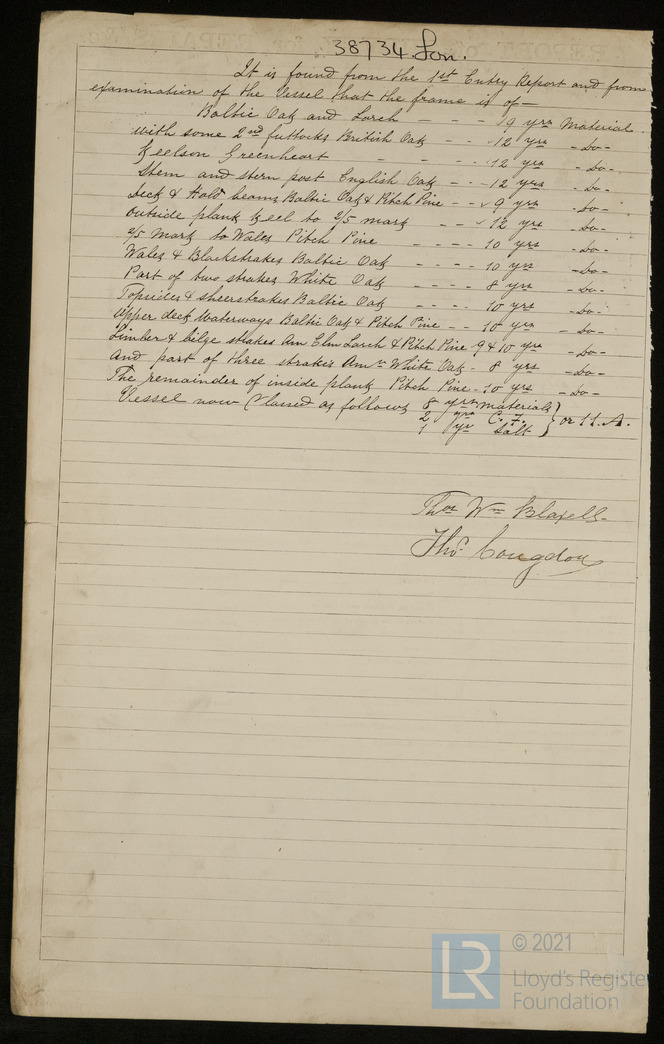 38734 Lon.
It is found from the 1st Entry Report and from
examination of the Vessel that the frame is of —
Baltic Oak and Larch - - - 9 yrs Material
with some 2nd futtocks British Oak - - 12 yrs - Do -
Keelson Greenheart - - - - 12 yrs - Do -
Stem and stern post English Oak - - 12 yrs - Do -
Deck & Hold beams Baltic Oak & Pitch Pine - - 9 yrs - Do -
Outside plank Keel to 2/5 mark - - 12 yrs - Do -
2/5 Mark to Wales Pitch Pine - - - - 10 yrs - Do -
Wales & Blackstrakes Baltic Oak - - - - 10 yrs - Do -
Part of two strakes White Oak - - - - 8 yrs - Do -
Topsides & sheerstrakes Baltic Oak - - - - 10 yrs - Do -
Upper deck Waterways Baltic Oak & Pitch Pine - - 10 yrs - Do -
Limber & bilge strakes Am Elm Larch & Pitch Pine 9 & 10 yrs - Do -
And part of three strakes Amn White Oak - 8 yrs - Do -
The remainder of inside plank Pitch Pine - 10 yrs - Do -
Vessel now Classed as follows 8 yrs materials
2 yrs C. F. } or 11. A.
1 yr Salt
Thos Wm Blaxell
Thos Congdon
LR © 2021
Lloyd's Register
Foundation